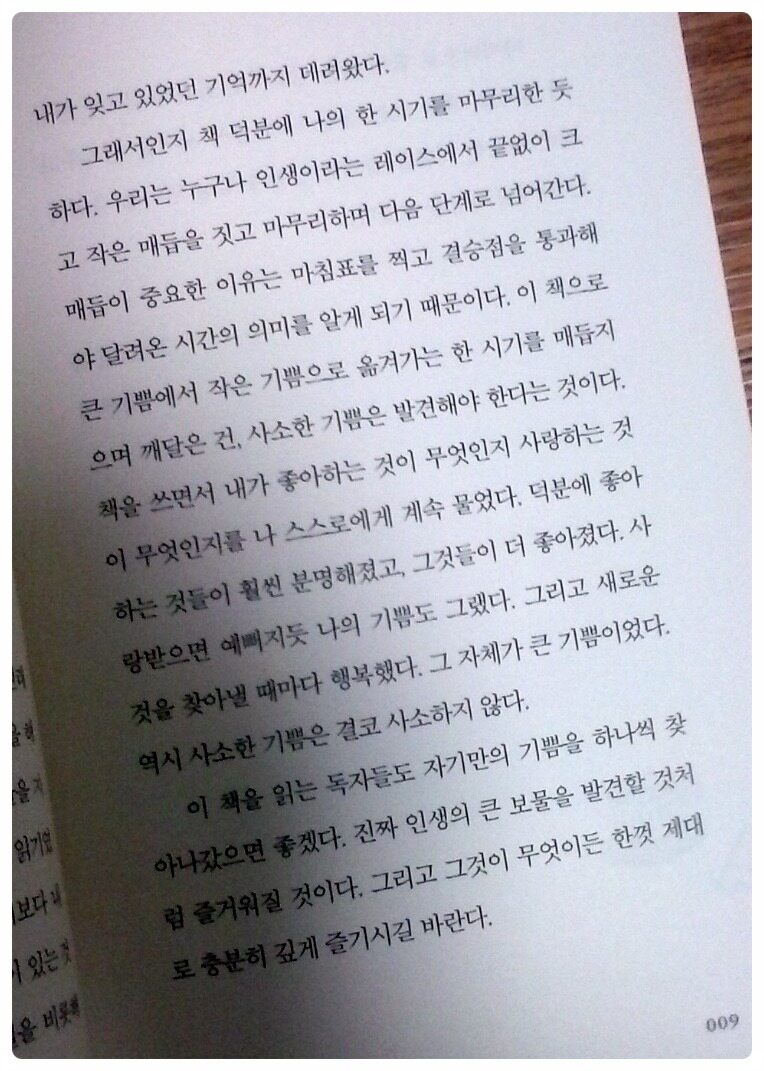 내가 잊고 있었던 기억까지 데려왔다.
그래서인지 책 덕분에 나의 한 시기를 마무리한 듯
하다. 우리는 누구나 인생이라는 레이스에서 끝없이 크
고 작은 매듭을 짓고 마무리하며 다음 단계로 넘어간다.
매듭이 중요한 이유는 마침표를 찍고 결승점을 통과해
야 달려온 시간의 의미를 알게 되기 때문이다. 이 책으로
큰 기쁨에서 작은 기쁨으로 옮겨가는 한 시기를 매듭지
으며 깨달은 건, 사소한 기쁨은 발견해야 한다는 것이다.
책을 쓰면서 내가 좋아하는 것이 무엇인지 사랑하는 것
이 무엇인지를 나 스스로에게 계속 물었다. 덕분에 좋아
하는 것들이 훨씬 분명해졌고, 그것들이 더 좋아졌다. 사
랑받으면 예뻐지듯 나의 기쁨도 그랬다. 그리고 새로운
것을 찾아낼 때마다 행복했다. 그 자체가 큰 기쁨이었다.
역시 사소한 기쁨은 결코 사소하지 않다.
이 책을 읽는 독자들도 자기만의 기쁨을 하나씩 찾
아나갔으면 좋겠다. 진짜 인생의 큰 보물을 발견할 것처
럼 즐거워질 것이다. 그리고 그것이 무엇이든 한껏 제대
로 충분히 깊게 즐기시길 바란다.
009